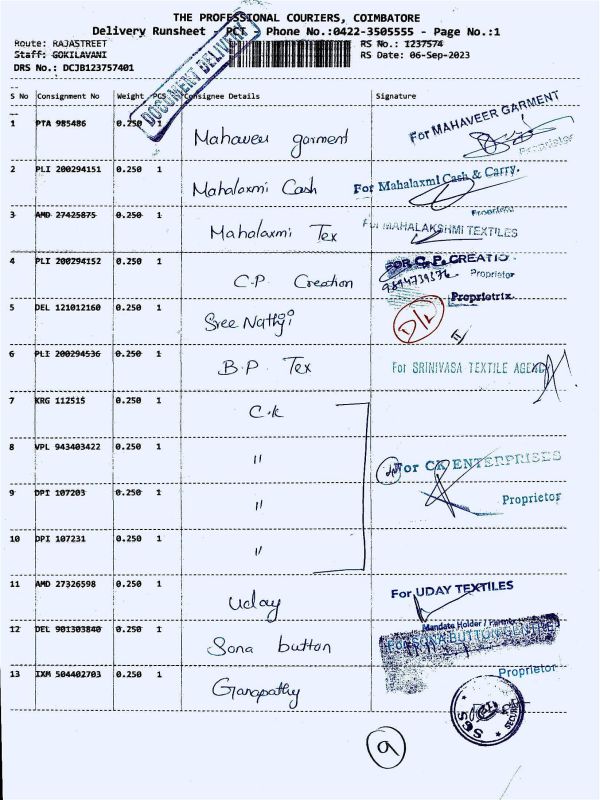 THE PROFESSIONAL COURIERS, COIMBATORE
Delivery Runsheet - PCT - Phone No.:0422-3505555 - Page No.:1
Route: RAJASTREET RS No.: 1237574
Staff: GOKILAVANI RS Date: 06-Sep-2023
DRS No.: DCJB123757401
DOCUMENT DELIVERY
S No Consignment No Weight PCS Consignee Details Signature
1 PTA 985486 0.250 1 Mahaveer garment For MAHAVEER GARMENT
Proprietor
2 PLI 200294151 0.250 1 Mahalaxmi Cash For Mahalaxmi Cash & Carry.
Proprietor
3 AMD 27425875 0.250 1 Mahalaxmi Tex For MAHALAKSHMI TEXTILES
4 PLI 200294152 0.250 1 C.P. Creation FOR C.P. CREATIO
Proprietor
Proprietrix.
5 DEL 121012160 0.250 1 Sree Nathji D/L
6 PLI 200294536 0.250 1 B.P. Tex For SRINIVASA TEXTILE AGENCY
7 KRG 112515 0.250 1 C.K
8 VPL 943403422 0.250 1 " For CK ENTERPRISES
9 DPI 107203 0.250 1 " Proprietor
10 DPI 107231 0.250 1 "
11 AMD 27326598 0.250 1 Uday For UDAY TEXTILES
Mandate Holder / Partner
12 DEL 901303840 0.250 1 Sona button For SONA BUTTON CENTRE
Proprietor
13 IXM 504402703 0.250 1 Ganapathy
SGS
9